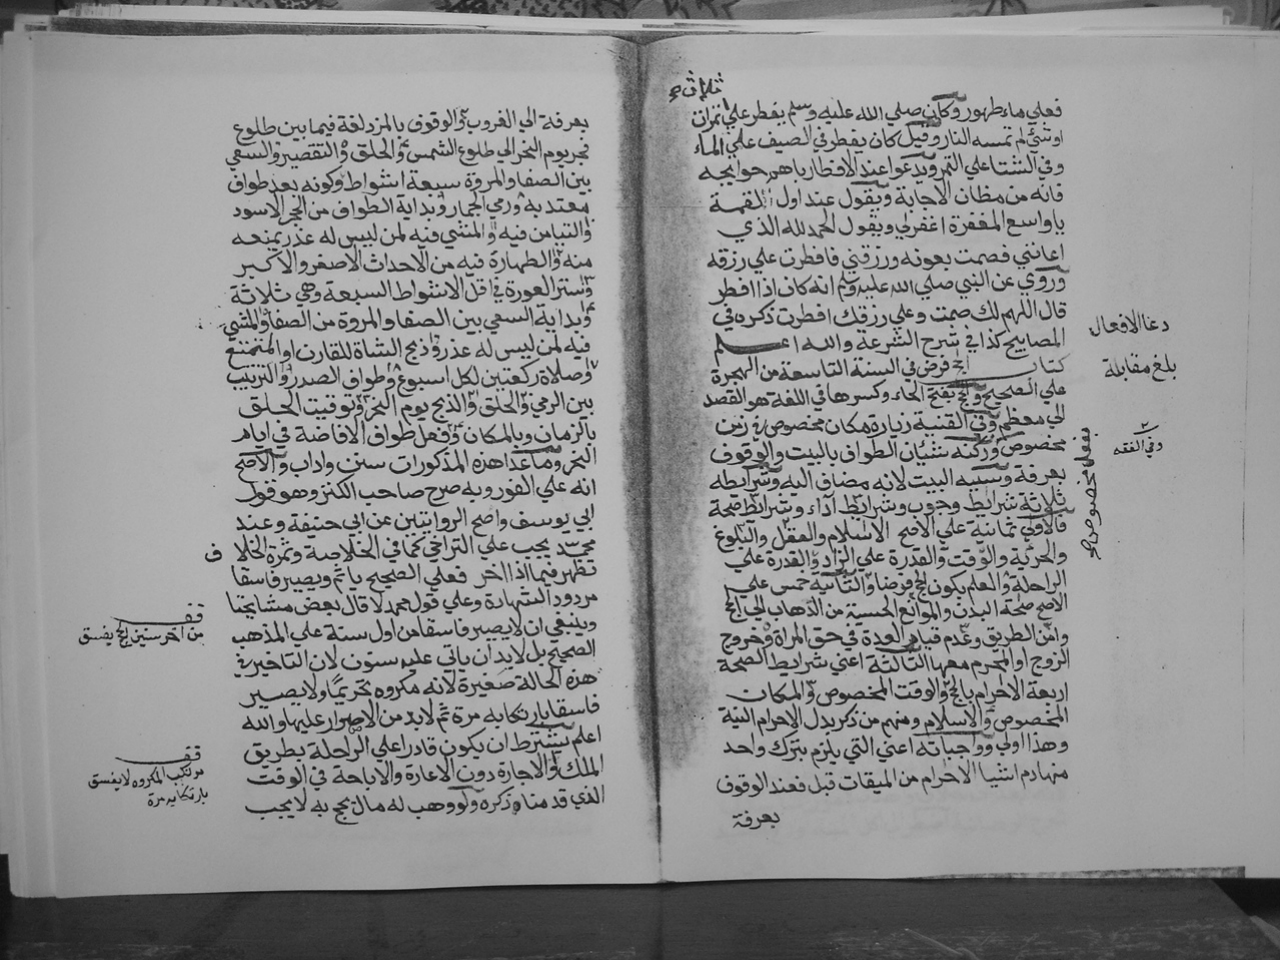 ثلاث
فعلي ماء طهور وكان صلي الله عليه وسلم يفطر علي تمرات
او شئ لم تمسه النار وقيل كان يفطر في الصيف علي الماء
وفي الشتا علي التمر ويدعوا عند الافطار باهم حوايجه
فانه من مظان الاجابة ويقول عند اول لقمة
ياواسع المغفرة اغفرلي ويقول الحمد لله الذي
اعانني فصمت بعونه ورزقني فافطرت علي رزقه
وروي عن النبي صلي الله عليه وسلم انه كان اذا افطر
قال اللهم لك صمت وعلي رزقك افطرت ذكره في
المصابيح كذا في شرح الشرعة والله اعلم
كتاب الحج فرض في السنة التاسعة من الهجرة
علي الصحيح والحج بفتح الحاء وكسرها في اللغة هو القصد
الي معظم وفي القنية زيارة مكان مخصوص في زمن
مخصوص وركنه شيئان الطواف بالبيت والوقوف
بعرفة وسببه البيت لانه مضاف اليه وشرايطه
ثلاثة شرايط وجوب وشرايط آداء وشرايط صحة
فالاولي ثمانية علي الاصح الاسلام والعقل والبلوغ
والحرية والوقت والقدرة علي الزاد والقدرة علي
الراحلة والعلم بكون الحج فرضا والثانية خمس علي
الاصح صحة البدن والموانع الحسية من الذهاب الي الحج
وامن الطريق وعدم قيام العدة في حق المراة وخروج
الزوج او المحرم معها الثالثة اعني شرايط الصحة
اربعة الاحرام بالحج والوقت المخصوص والمكان
المخصوص والاسلام ومنهم من ذكر بدل الاحرام النية
وهذا اولي وواجباته اعني التي يلزم بترك واحد
منها دم اشيا الاحرام من الميقات قبل فعند الوقوف
بعرفة
دعا الافعال
بلغ مقابلة
وفي الفقه
بفعل مخصوص
بعرفة الي الغروب والوقوف بالمزدلفة فيما بين طلوع
فجر يوم النحر الي طلوع الشمس والحلق والتقصير والسعي
بين الصفا والمروة سبعة اشواط وكونه بعد طواف
معتد به ورمي الجمار وبداية الطواف من الحجر الاسود
والتيامن فيه والمشي فيه لمن ليس له عذر يمنعه
منه والطهارة فيه من الاحداث الاصغر والاكبر
وستر العورة في اقل الاشواط السبعة وهي ثلاثة
وبداية السعي بين الصفا والمروة من الصفا والمشي
فيه لمن ليس له عذر وذبح الشاة للقارن او المتمتع
وصلاة ركعتين لكل اسبوع وطواف الصدر والترتيب
بين الرمي والحلق والذبح يوم النحر وتوقيت الحلق
بالزمان وبالمكان وفعل طواف الافاضة في ايام
النحر وماعدا هذه المذكورات سنن واداب والاصح
انه علي الفور وبه صرح صاحب الكنز وهو قول
ابي يوسف واصح الروايتين عن ابي حنيفة وعند
محمد يجب علي التراخي كما في الخلاصة وثمرة الخلاف
تظهر فيما اذا اخر فعلي الصحيح ياثم ويصير فاسقا
مردود الشهادة وعلي قول محمد لا قال بعض مشايخنا
وينبغي ان لا يصير فاسقا من اول سنة علي المذهب
الصحيح بل لابد ان ياتي عليه سنون لان التاخير في
هذه الحالة صغيرة لانه مكروه تحريما ولا يصير
فاسقا بارتكابه مرة ثم لابد من الاصرار عليها والله
اعلم يشترط ان يكون قادرا علي الراحلة بطريق
الملك والاجارة دون الاعارة والاباحة في الوقت
الذي قدمنا ذكره ولو وهب له مال يحج به لا يجب
قف
من اخر سنين الحج يفسق
قف
مرتكب المكروه لا يفسق
بارتكابه مرة